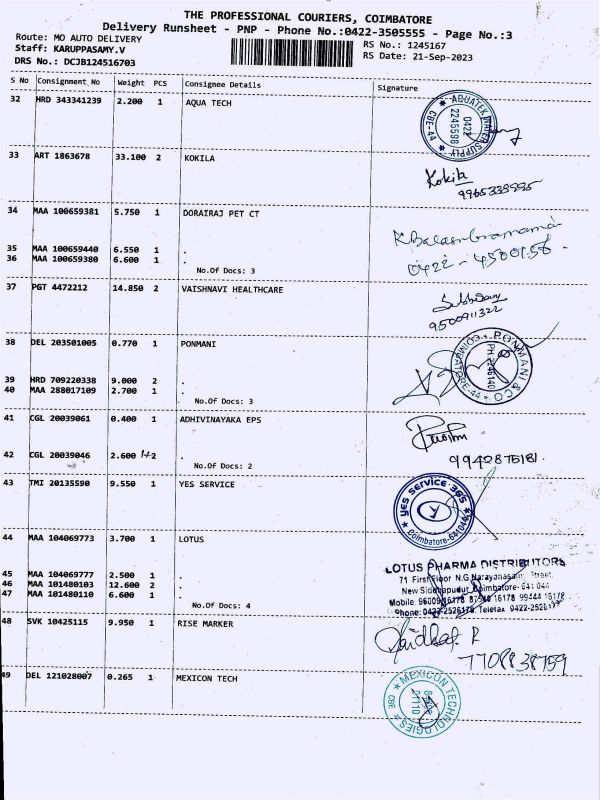 THE PROFESSIONAL COURIERS, COIMBATORE
Delivery Runsheet - PNP - Phone No.:0422-3505555 - Page No.:3
Route: MO AUTO DELIVERY
RS No.: 1245167
Staff: KARUPPASAMY.V
RS Date: 21-Sep-2023
DRS No.: DCJB124516703
S No Consignment No Weight PCS Consignee Details Signature
32 HRD 343341239 2.200 1 AQUA TECH
AQUATEK WATER SUPPLY
0422
2245598
CBE-44
33 ART 1863678 33.100 2 KOKILA
Kokila
34 MAA 100659381 5.750 1 DORAIRAJ PET CT
K Balasubramaniam
0422 - 4500158
35 MAA 100659440 6.550 1 .
36 MAA 100659380 6.600 1 .
No.Of Docs: 3
37 PGT 4472212 14.850 2 VAISHNAVI HEALTHCARE
9500911322
38 DEL 203501005 0.770 1 PONMANI
PONMANI & CO
COIMBATORE-44
39 HRD 709220338 9.000 2 .
40 MAA 288017109 2.700 1 .
No.Of Docs: 3
41 CGL 20039061 0.400 1 ADHIVINAYAKA EPS
42 CGL 20039046 2.600 2 .
No.Of Docs: 2
43 TMI 20135590 9.550 1 YES SERVICE
YES SERVICE 365
Coimbatore-641044
44 MAA 104069773 3.700 1 LOTUS
LOTUS PHARMA DISTRIBUTORS
71 First Floor N.G.Narayanasamy Street,
New Siddhapudur, Coimbatore- 641 044
45 MAA 104069777 2.500 1 .
46 MAA 101480103 12.600 2 .
47 MAA 101480110 6.600 1 .
No.Of Docs: 4
48 SVK 10425115 9.950 1 RISE MARKER
7708838759
49 DEL 121028007 0.265 1 MEXICON TECH
MEXICON TECHNOLOGIES
CBE